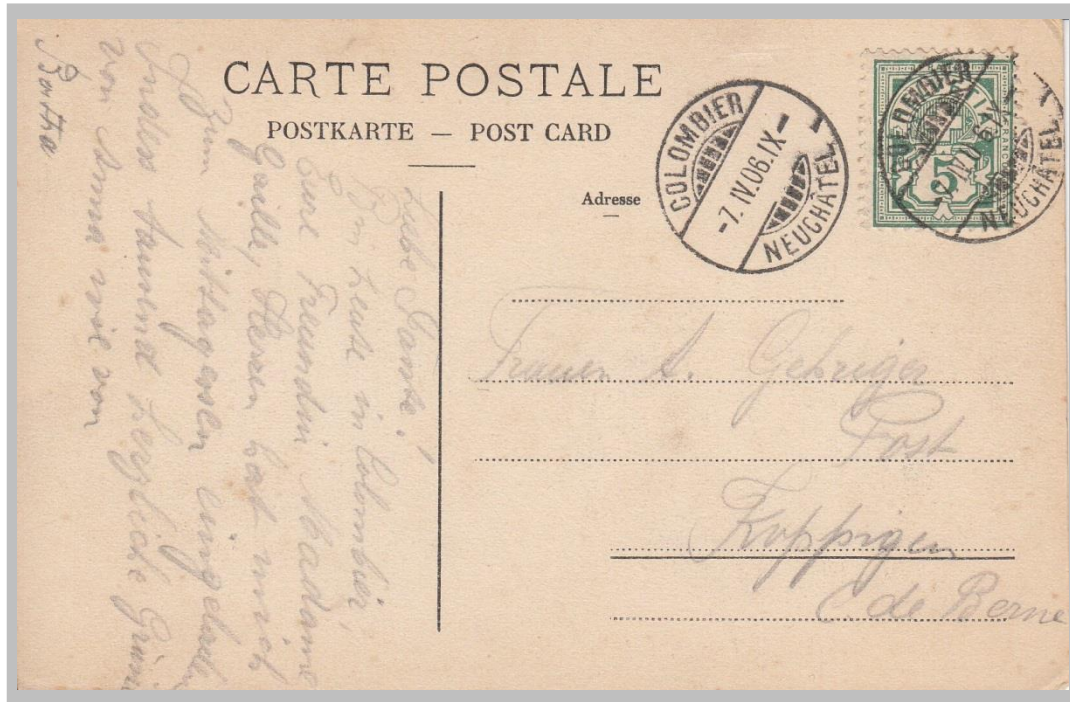 CARTE POSTALE
POSTKARTE — POST CARD
Adresse
COLOMBIER
-7.IV.06.IX-
NEUCHÂTEL
COLOMBIER
NEUCHÂTEL
5
Frauen A. Gehriger
Post
Koppigen
C. de Berne
Liebe Tante,
Bin heute in Colombier,
Eure Freundin Madame
hat mich
zum Mittagessen eingeladen
tausend herzliche Grüsse
von Anna wie von
Bertha